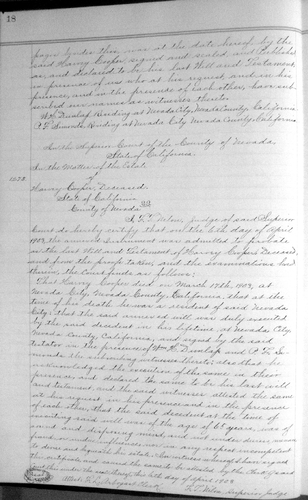 18
page besides this, was at the date hereof by the
said Harvey Cooper signed and sealed and Published
as, and declared to be his Last Will and Testament
in presence of us who at his request, and in his
presence, and in the presence of each other, have sub-
scribed our names as witnesses thereto.
Wm Dunlap Residing at Nevada City, Nevada County, California
Residing at Nevada City Nevada County, California
In the Superior Court of the County of Nevada
State of California.
In the Matter of the Estate
of
Harvey Cooper, Deceased.
State of California
County of Nevada SS
I, F. T. Nilon, judge of said Superior
Court do hereby certify that on the 6th day of April
1903, the annexed instrument was admitted to probate
as the last Will and Testament of Harvey Cooper Deceased,
and from the proofs taken and the examinations had
therein, the Court finds as follows:
That Harvey Cooper died on March 17th, 1903, at
Nevada City, Nevada County, California, that at the
time of his death he was a resident of said Nevada
City; that the said annexed will was duly executed
by the said decedent in his lifetime, at Nevada City,
Nevada County, California, and signed by the said
testator in the presence of Wm H. Dunlap and
the subscribing witnesses thereto; also that he
acknowledged the execution of the same in their
presence and declared the same to be his last will
and testament and the said witnesses attested the same
at his request in his presence and in the presence
of each other; that the said decedent at the time of
executing said will was of the age of years, was of
sound and disposing mind, and not under duress, menace
fraud or undue influence, nor in any respect incompetent
to devise and bequeath his estate.
this 6th day of April 1903
Judge